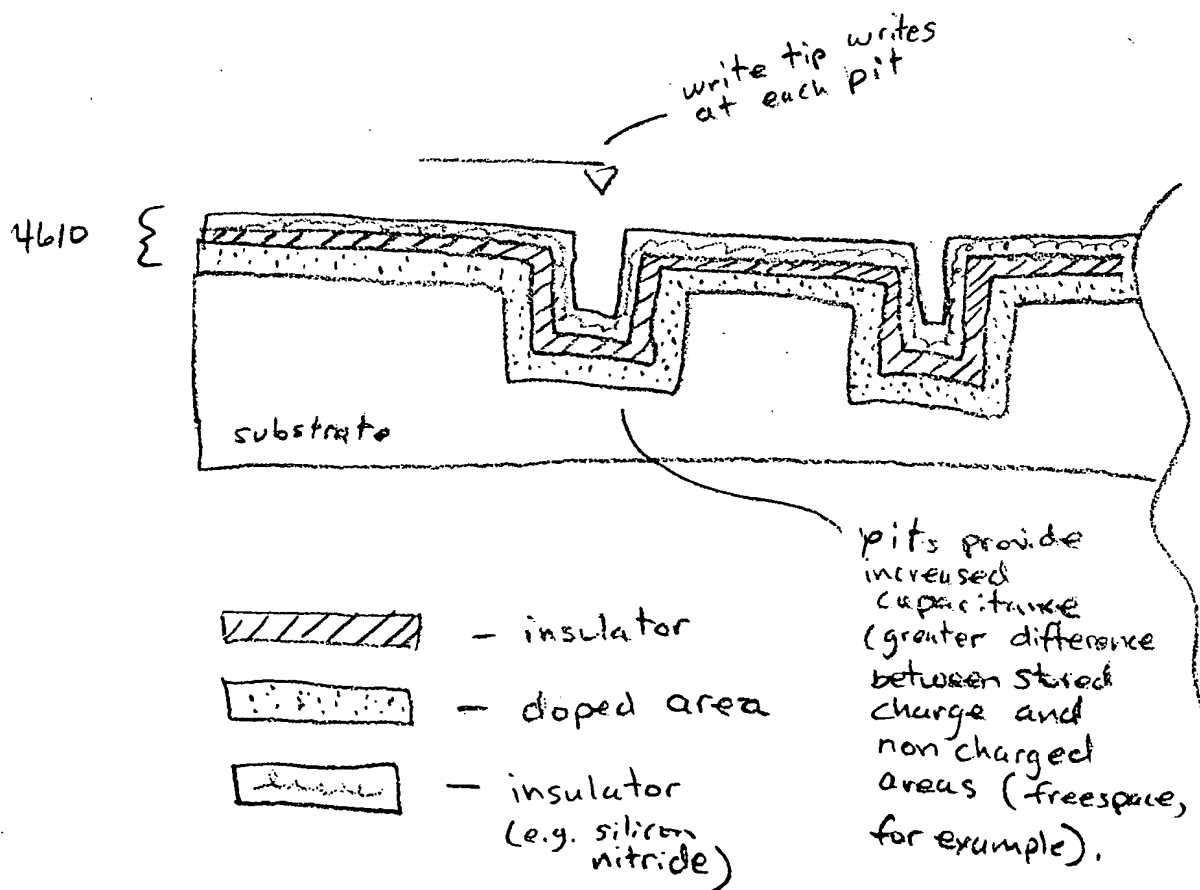 write tip writes
at each pit
4610
substrate
pits provide
increased
capacitance
(greater difference
between stored
charge and
non charged
areas (freespace,
for example).
- insulator
- doped area
- insulator
(e.g. silicon
nitride)